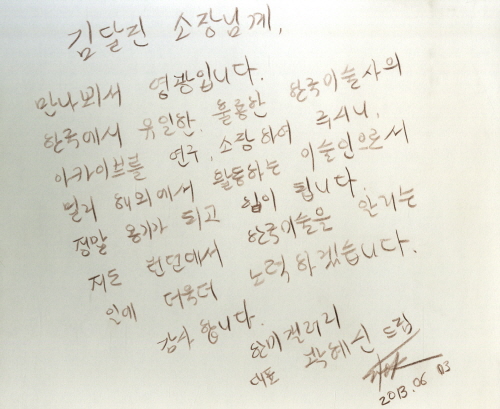 김달진 소장님께,
만나뵈서 영광입니다.
한국에서 유일한, 훌륭한 한국미술사의
아카이브를 연구, 소장하여 주시니,
멀리 해외에서 활동하는 미술인으로서
정말 용기가 되고 힘이 됩니다.
저도 런던에서 한국미술을 알리는
일에 더욱더 노력하겠습니다.
감사합니다.
한미갤러리
대표 곽혜신 드림
2013. 06 03